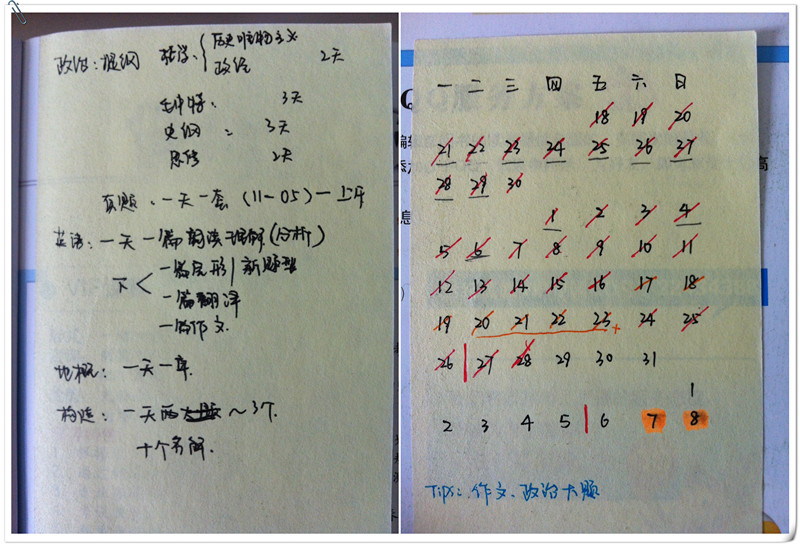 政治：提纲 哲学：{历史唯物主义 2天
政经
毛中特： 3天
史纲： 3天
思修 2天
真题：一天一套（11-05）—上午
英语：一天一篇阅读理解（分析）
下 < 一篇完形|新题型
一篇翻译
一篇作文.
地概：一天一章.
构造：一天两大题～3个.
十个名解.
一 二 三 四 五 六 日
18 19 20
21 22 23 24 25 26 27
28 29 30
1 2 3 4
5 6 7 8 9 10 11
12 13 14 15 16 17 18
19 20 21 22 23 + 24 25
26 27 28 29 30 31
1
2 3 4 5 6 7 8
Tips：作文、政治大题